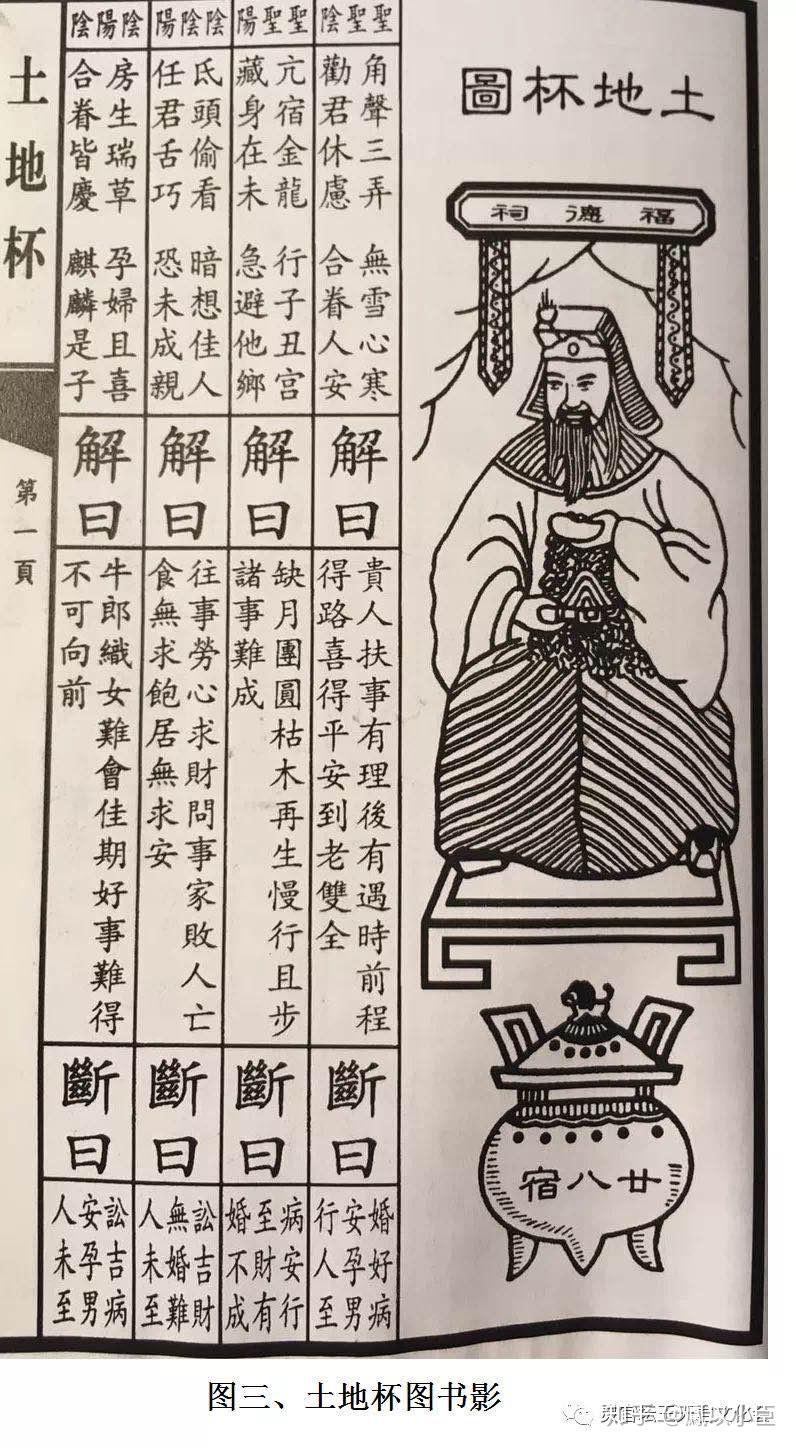 土地杯圖
福德祠
廿八宿
聖聖陰
角聲三弄 無雪心寒
勸君休慮 合眷人安
解曰
貴人扶事有理後有遇時前程
得路喜得平安到老雙全
斷曰
婚好病
安孕男
行人至
聖聖陽
亢宿金龍 行子丑宮
藏身在未 急避他鄉
解曰
缺月團圓枯木再生慢行且步
諸事難成
斷曰
病安行
至財有
婚不成
陰陰陽
氐頭偷看 暗想佳人
任君舌巧 恐未成親
解曰
往事勞心求財問事家敗人亡
食無求飽居無求安
斷曰
訟吉財
無婚難
人未至
陰陽陰
房生瑞草 孕婦且喜
合眷皆慶 麒麟是子
解曰
牛郎織女難會佳期好事難得
不可向前
斷曰
訟吉病
安孕男
人未至
土地杯
第一頁
图三、土地杯图书影